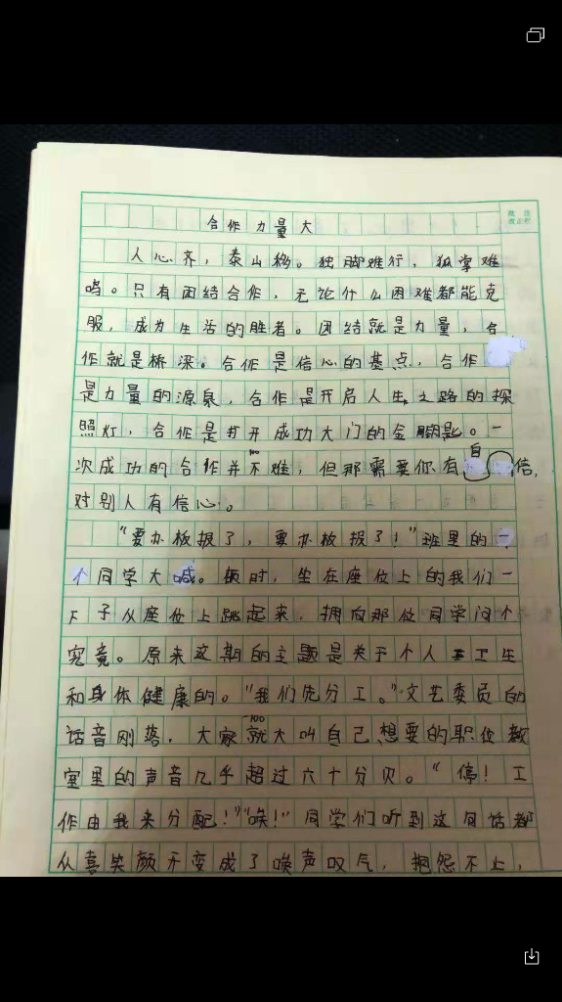 合作力量大
人心齐，泰山移。独脚难行，孤掌难
鸣。只有团结合作，无论什么困难都能克
服，成为生活的胜者。团结就是力量，合
作就是桥梁。合作是信心的基点，合作
是力量的源泉，合作是开启人生之路的探
照灯，合作是打开成功大门的金钥匙。一
次成功的合作并不难，但那需要你有自信，
对别人有信心。
“要办板报了，要办板报了！”班里的一
个同学大喊。顿时，坐在座位上的我们一
下子从座位上跳起来，拥向那位同学问个
究竟。原来这期的主题是关于个人卫生
和身体健康的。“我们先分工。”文艺委员的
话音刚落，大家就大叫自己想要的职位教
室里的声音几乎超过六十分贝。“停！工
作由我来分配！”“唉！”同学们听到这句话都
从喜笑颜开变成了唉声叹气，抱怨不上，